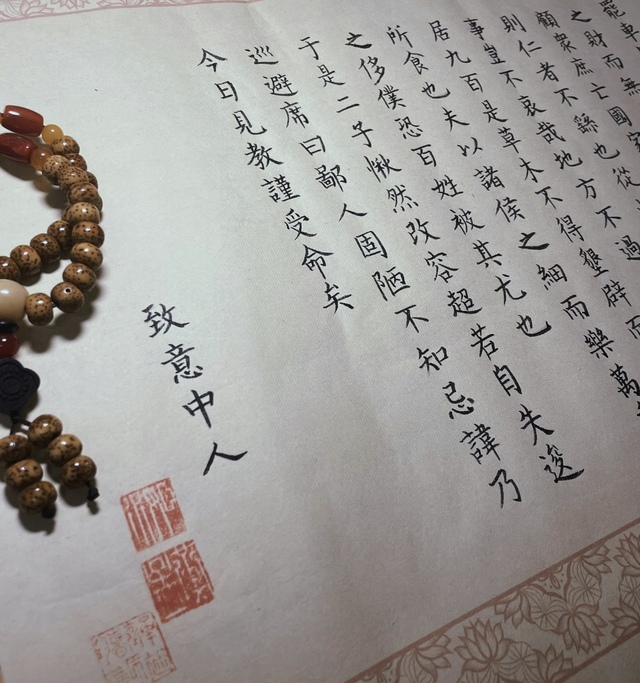 罷車
之財而無
顧眾庶亡國
則仁者不繇也從
事豈不哀哉地方不過
居九百是草木不得墾辟而
所食也夫以諸侯之細而樂萬
之侈僕恐百姓被其尤也
于是二子愀然改容超若自失逡
巡避席曰鄙人固陋不知忌諱乃
今日見教謹受命矣
致意中人